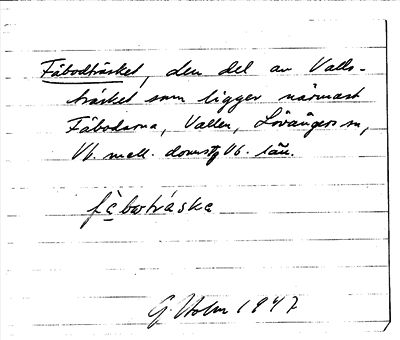 Fäbodträsket, den del av Valls-
träsket som ligger närmast
Fäbodarna, Vallen, Lövångers sn,
Vb. mell. domstg Vb. län.
fàbotràske
G. Holm 1947